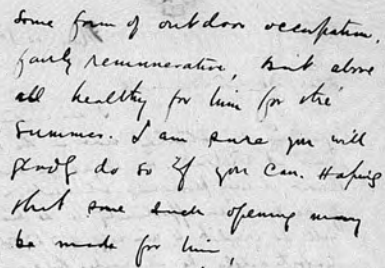 some form of outdoor occupation,
fairly remunerative, but above
all healthy for him for the
summer. I am sure you will
gladly do so if you can. Hoping
that some such opening may
be made for him,